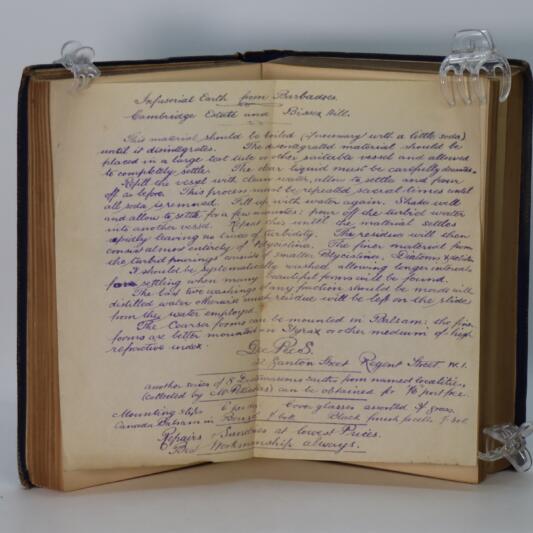 Infusorial Earth from Barbados
Cambridge Estate and Bissex Hill.
This material should be boiled (if necessary with a little soda)
until it disintegrates. The disintegrated material should be
placed in a large test tube or other suitable vessel and allowed
to completely settle. The clear liquid must be carefully decanted.
Refill the vessel with clean water, allow to settle and pour
off as before. This process must be repeated several times until
all soda is removed. Fill up with water again. Shake well
and allow to settle for a few minutes: pour off the turbid water
into another vessel. Repeat this until the material settles
rapidly leaving no traces of turbidity. The residue will then
consist almost entirely of Polycistina. The finer material from
the turbid pourings consists of smaller Polycistinae, Diatoms
It should be systematically washed allowing longer intervals
for settling when many beautiful forms will be found.
The last two washings of any fraction should be made with
distilled water otherwise much residue will be left on the slide
from the water employed.
The Coarser forms can be mounted in Balsam: the finer
forms are better mounted in Styrax or other medium of high
refractive index.
Ganton Street Regent Street W.1.
another series of 8 Diatomaceous earths from named localities
(collected by) can be obtained for post free.
Mounting slips 6 Cover glasses assorted
Canada Balsam in Black finish
Repairs Sundries at lowest Prices.
Best Workmanship always.